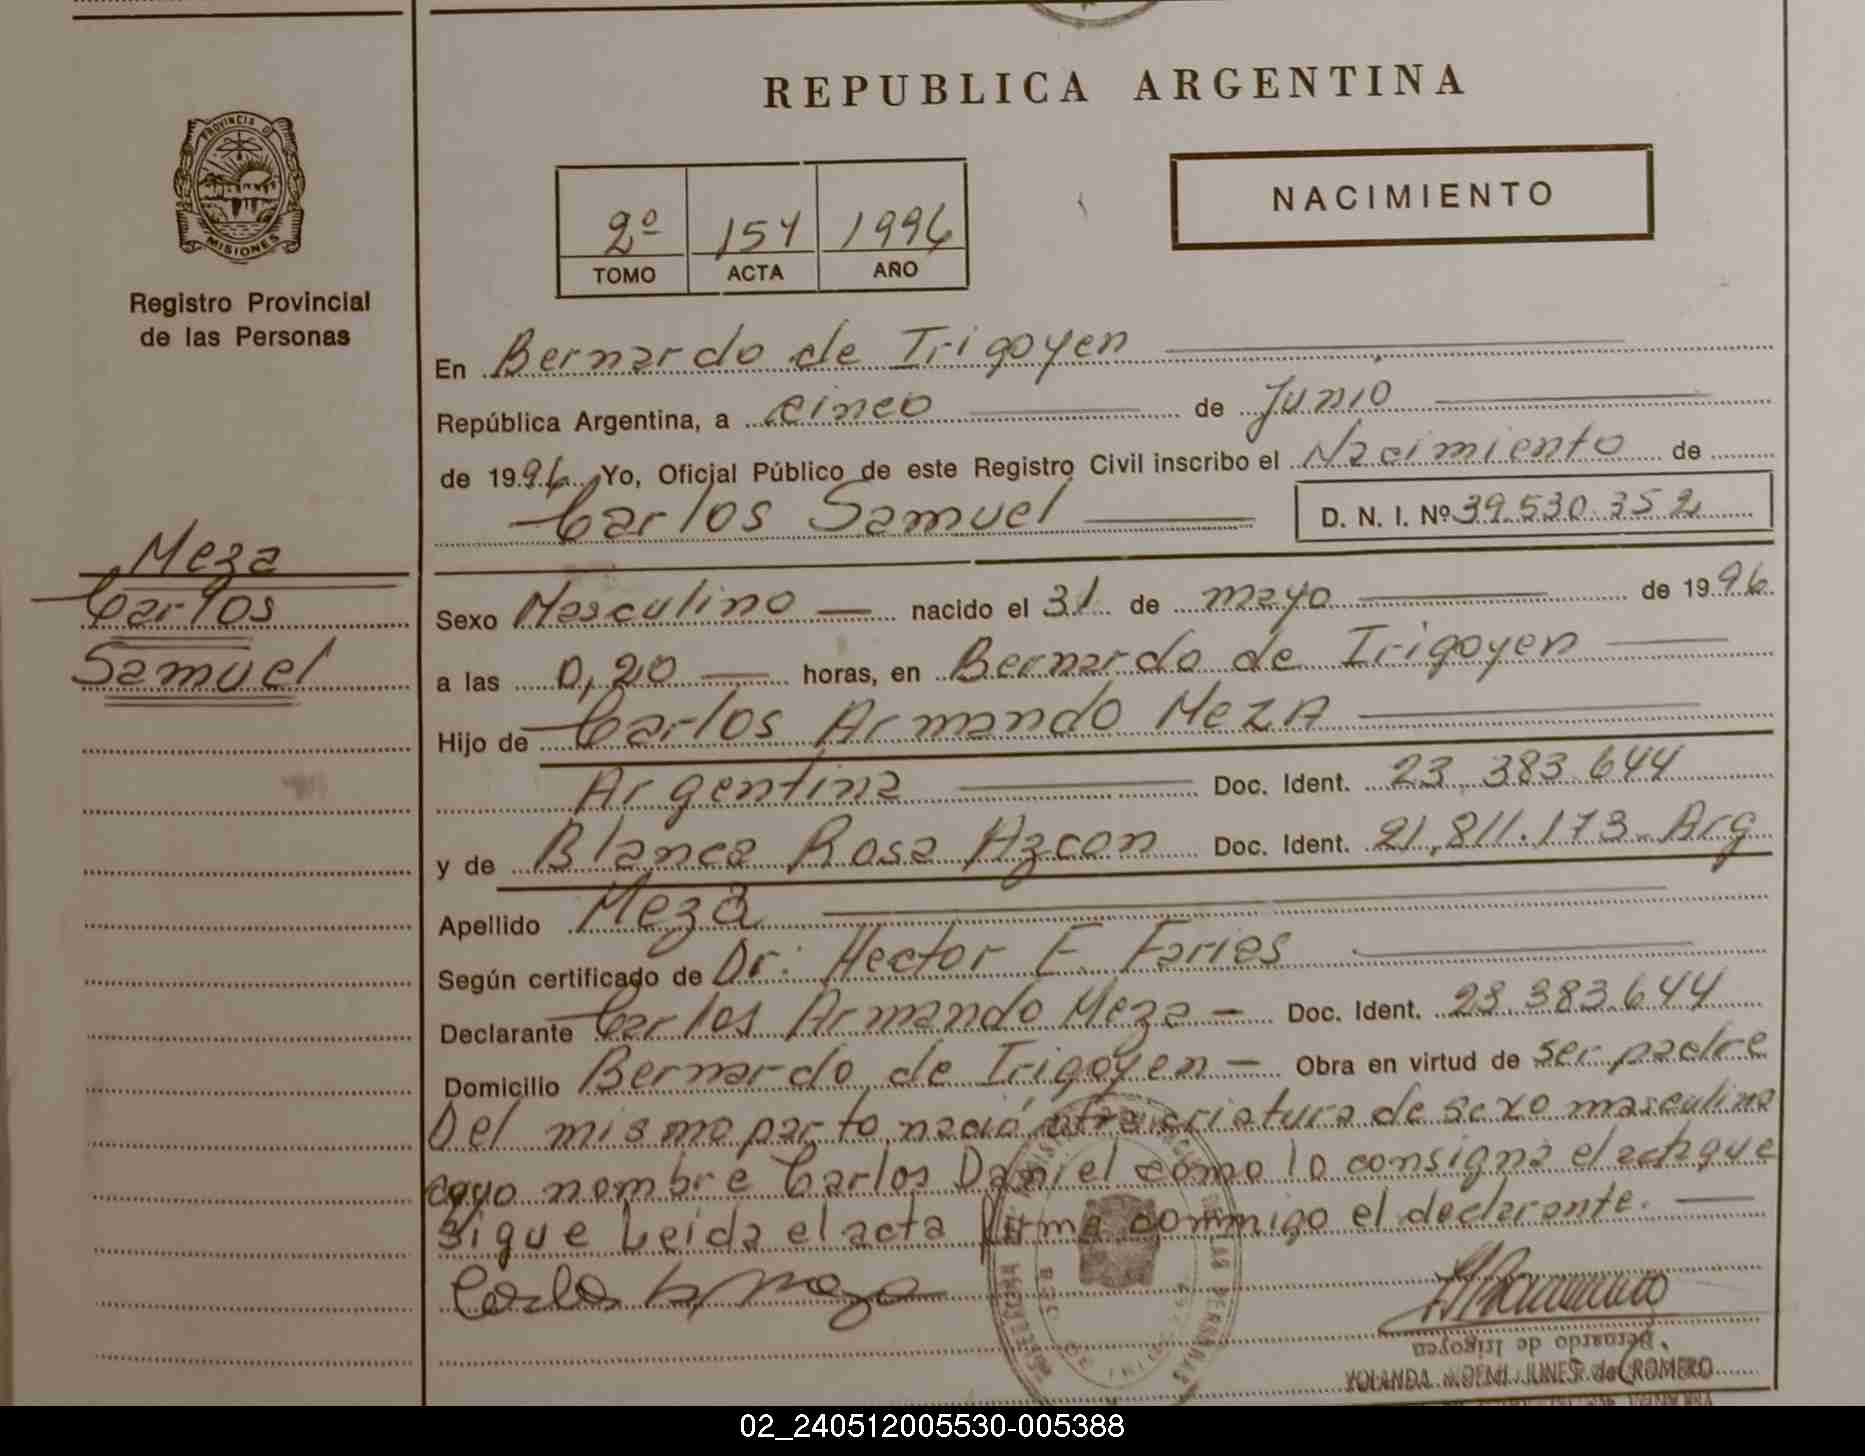 REPUBLICA ARGENTINA
PROVINCIA DE
MISIONES
Registro Provincial
de las Personas
NACIMIENTO
2º 154 1996
TOMO ACTA AÑO
En Bernardo de Irigoyen
República Argentina, a cinco de Junio
de 1996 Yo, Oficial Público de este Registro Civil inscribo el Nacimiento de
Carlos Samuel D. N. I. Nº 39.530.352
Meza
Carlos
Samuel
Sexo Masculino nacido el 31 de mayo de 1996
a las 0,20 horas, en Bernardo de Irigoyen
Hijo de Carlos Armando MezA
Argentina Doc. Ident. 23.383.644
y de Blanca Rosa Azcon Doc. Ident. 21.811.173 Arg
Apellido Meza
Según certificado de Dr: Hector E. Faries
Declarante Carlos Armando Meza - Doc. Ident. 23.383.644
Domicilio Bernardo de Irigoyen - Obra en virtud de ser padre
Del mismo parto nació otra criatura de sexo masculino
cuyo nombre Carlos Daniel como lo consigna el acta que
sigue Leida el acta firma conmigo el declarante.
Carlos A. Meza
Bernardo de Irigoyen
YOLANDA NOEMI JUNES de ROMERO
02_240512005530-005388